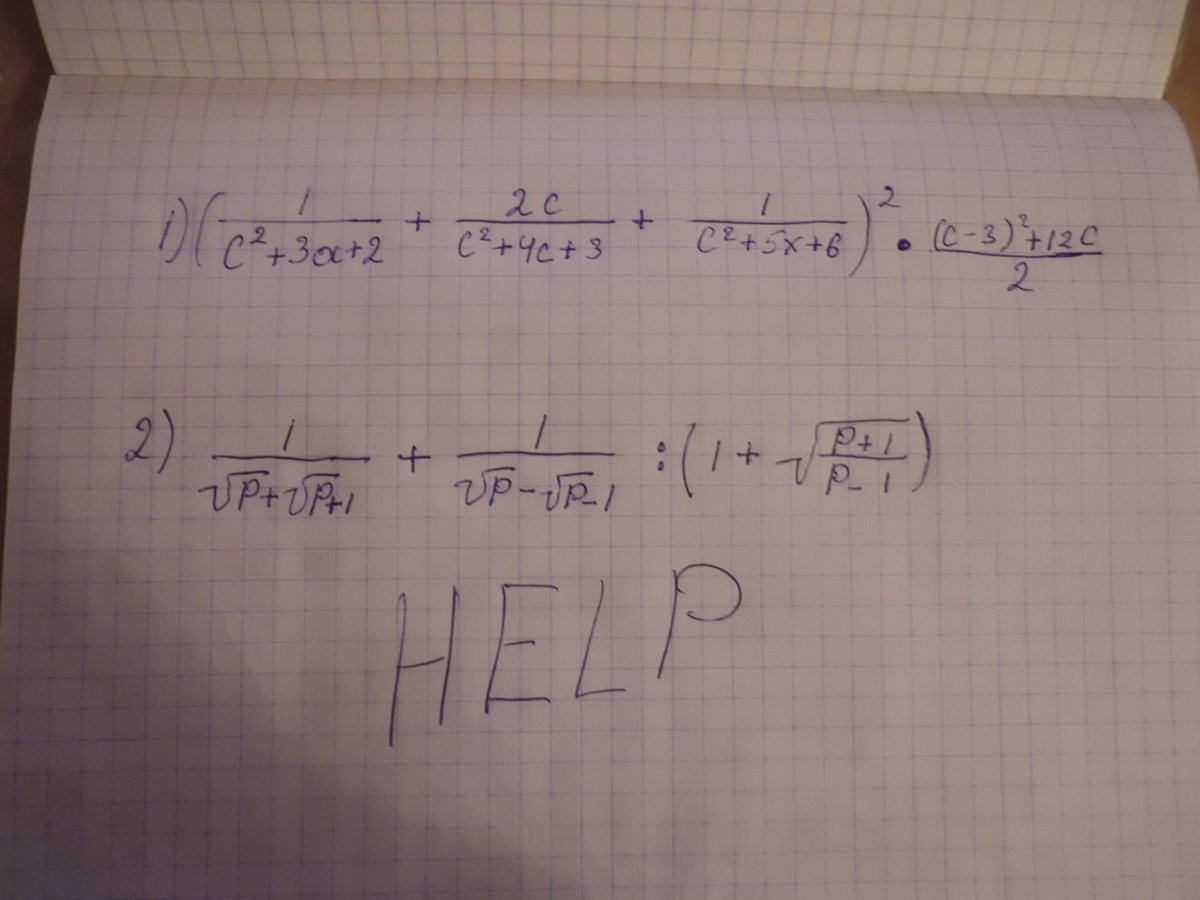 1) (1/(c²+3x+2) + 2c/(c²+4c+3) + 1/(c²+5x+6))² • ((c-3)²+12c)/2
2) 1/(√p+√p+1) + 1/(√p-√p-1) : (1+√((p+1)/(p-1)))
HELP